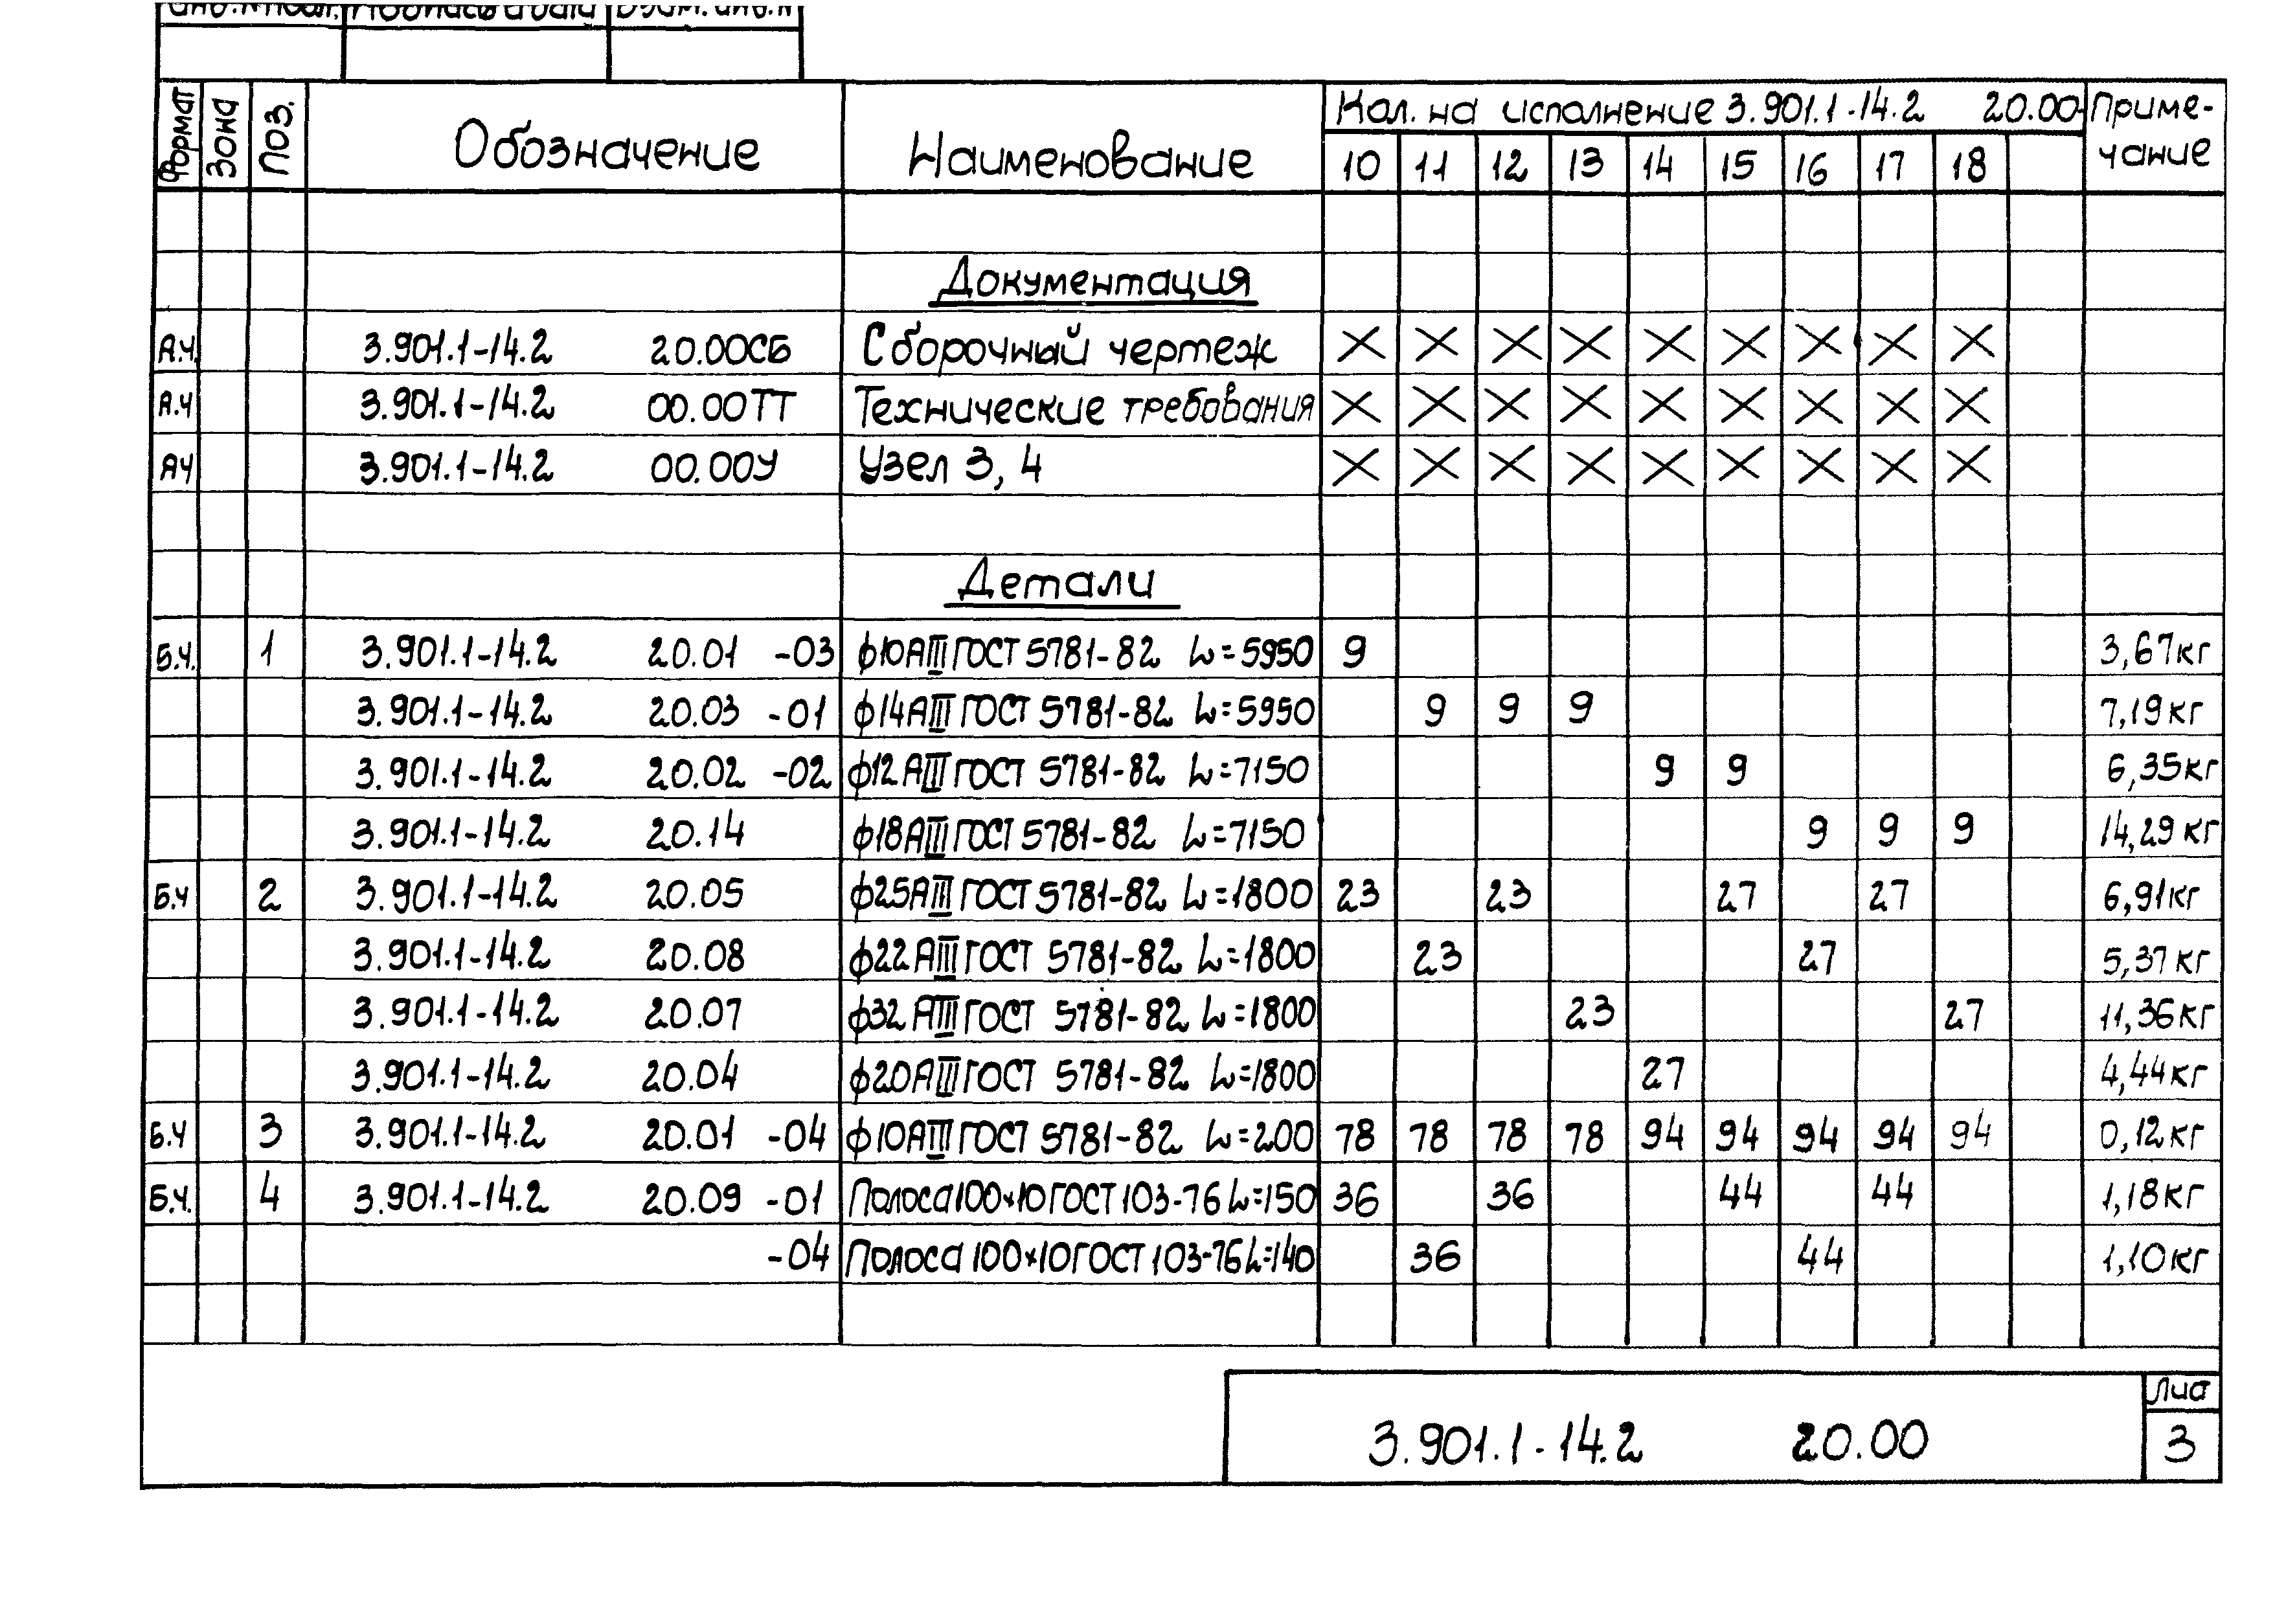 Инв.№подл. Подпись и дата Взам.инв.№
Формат Зона Поз. Обозначение Наименование Кол. на исполнение 3.901.1-14.2 20.00- Приме-
чание
10 11 12 13 14 15 16 17 18
Документация
А.4. 3.901.1-14.2 20.00СБ Сборочный чертеж X X X X X X X X X
А.4 3.901.1-14.2 00.00ТТ Технические требования X X X X X X X X X
А4 3.901.1-14.2 00.00У Узел 3, 4 X X X X X X X X X
Детали
Б.Ч. 1 3.901.1-14.2 20.01 -03 ϕ10АIII ГОСТ 5781-82 L=5950 9 3,67кг
3.901.1-14.2 20.03 -01 ϕ14АIII ГОСТ 5781-82 L=5950 9 9 9 7,19кг
3.901.1-14.2 20.02 -02 ϕ12АIII ГОСТ 5781-82 L=7150 9 9 6,35кг
3.901.1-14.2 20.14 ϕ18АIII ГОСТ 5781-82 L=7150 9 9 9 14,29кг
Б.Ч 2 3.901.1-14.2 20.05 ϕ25АIII ГОСТ 5781-82 L=1800 23 23 27 27 6,91кг
3.901.1-14.2 20.08 ϕ22АIII ГОСТ 5781-82 L=1800 23 27 5,37кг
3.901.1-14.2 20.07 ϕ32АIII ГОСТ 5781-82 L=1800 23 27 11,36кг
3.901.1-14.2 20.04 ϕ20АIII ГОСТ 5781-82 L=1800 27 4,44кг
Б.Ч 3 3.901.1-14.2 20.01 -04 ϕ10АIII ГОСТ 5781-82 L=200 78 78 78 78 94 94 94 94 94 0,12кг
Б.Ч. 4 3.901.1-14.2 20.09 -01 Полоса 100×10 ГОСТ 103-76 L=150 36 36 44 44 1,18кг
-04 Полоса 100×10 ГОСТ 103-76 L=140 36 44 1,10кг
3.901.1-14.2 20.00
Лист
3